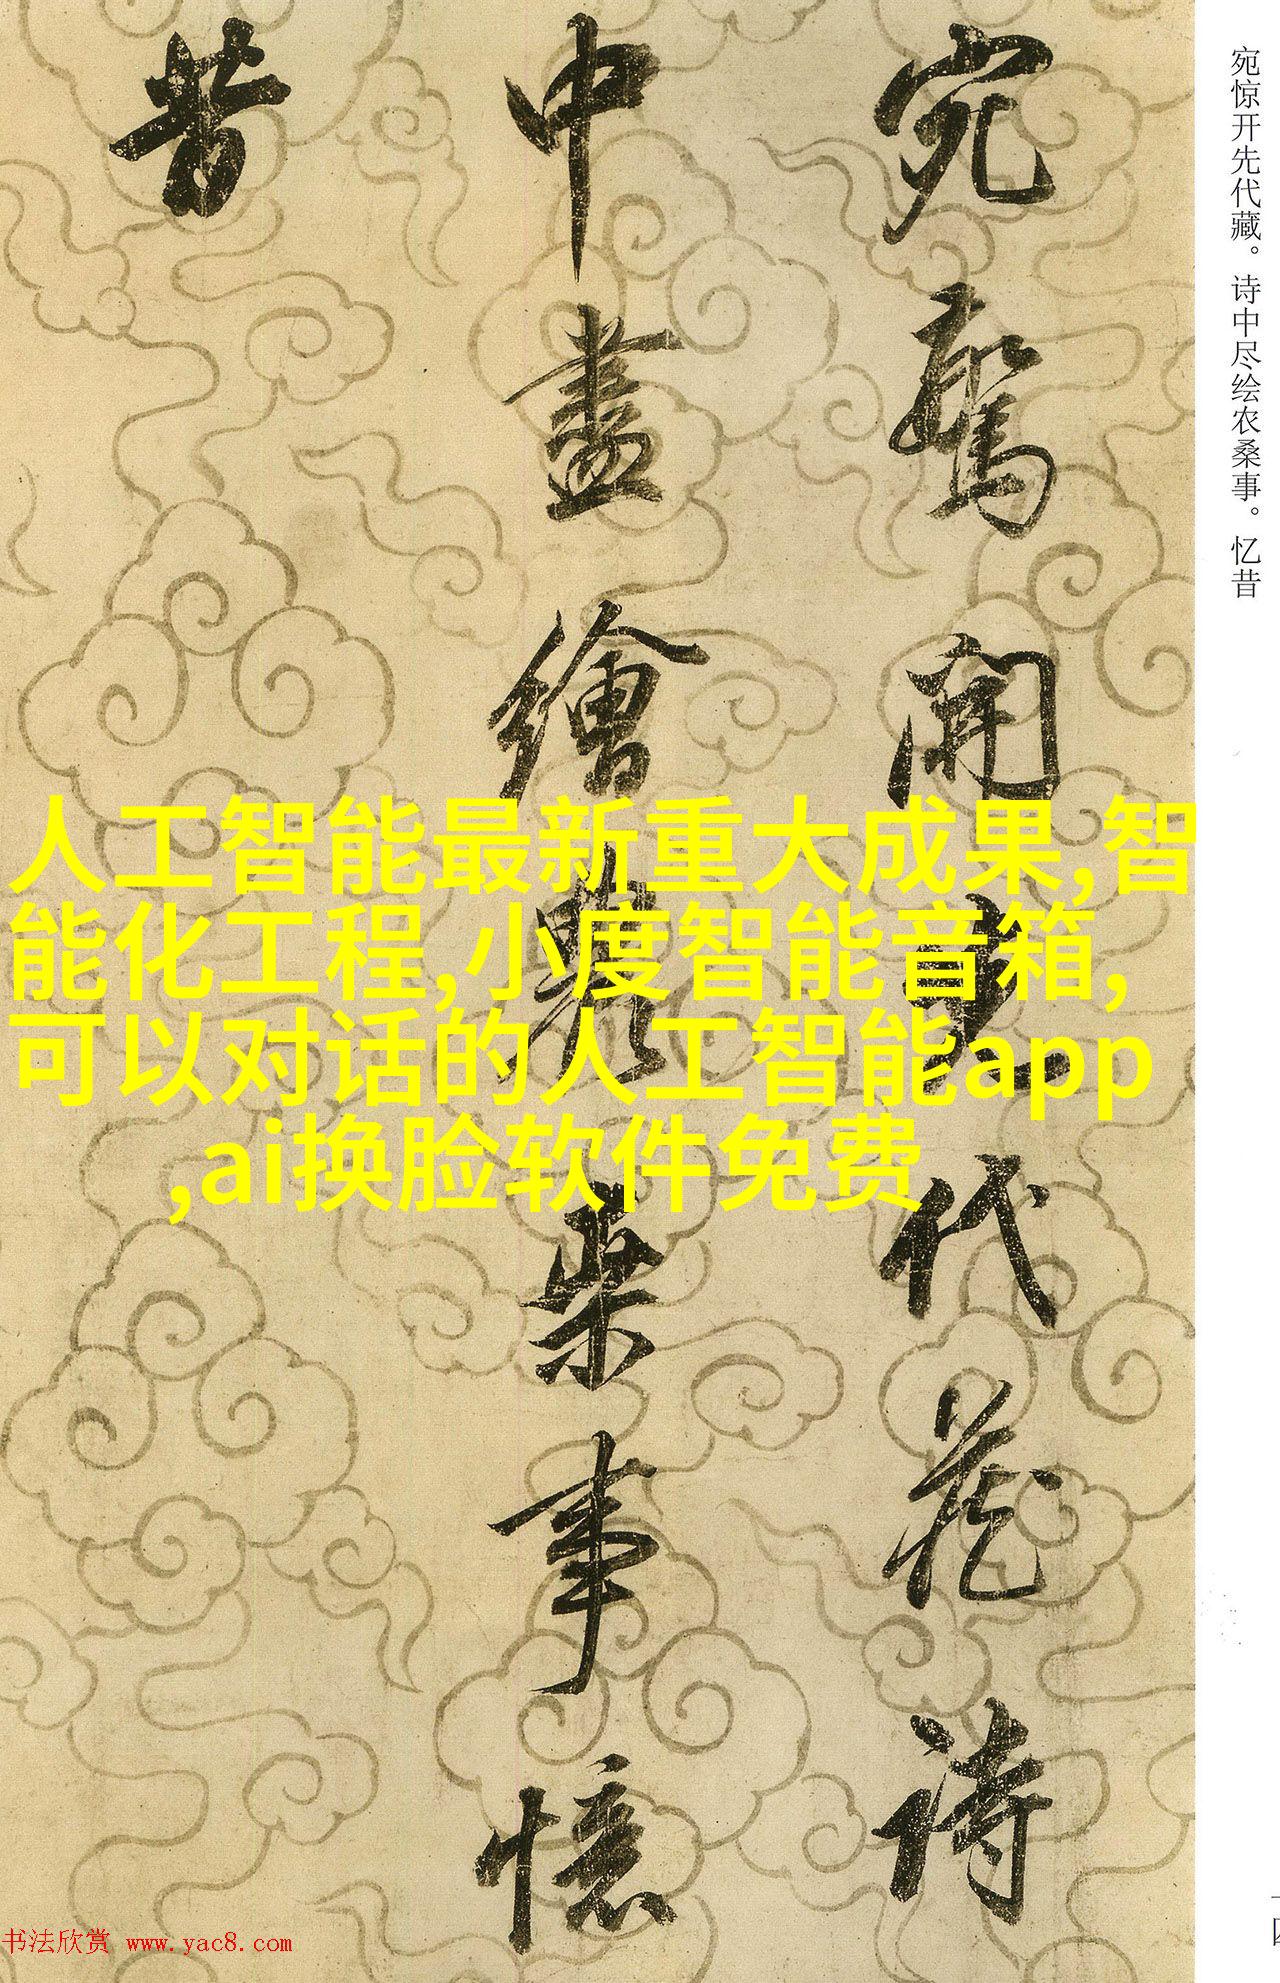 宛驚開先代藏詩
中盡繪農桒事憶
昔
宛惊开先代藏。诗中尽绘农桑事。忆昔
人工智能最新重大成果,智
能化工程,小度智能音箱,
可以对话的人工智能app
,ai换脸软件免费
书法欣赏 www.yac8.com